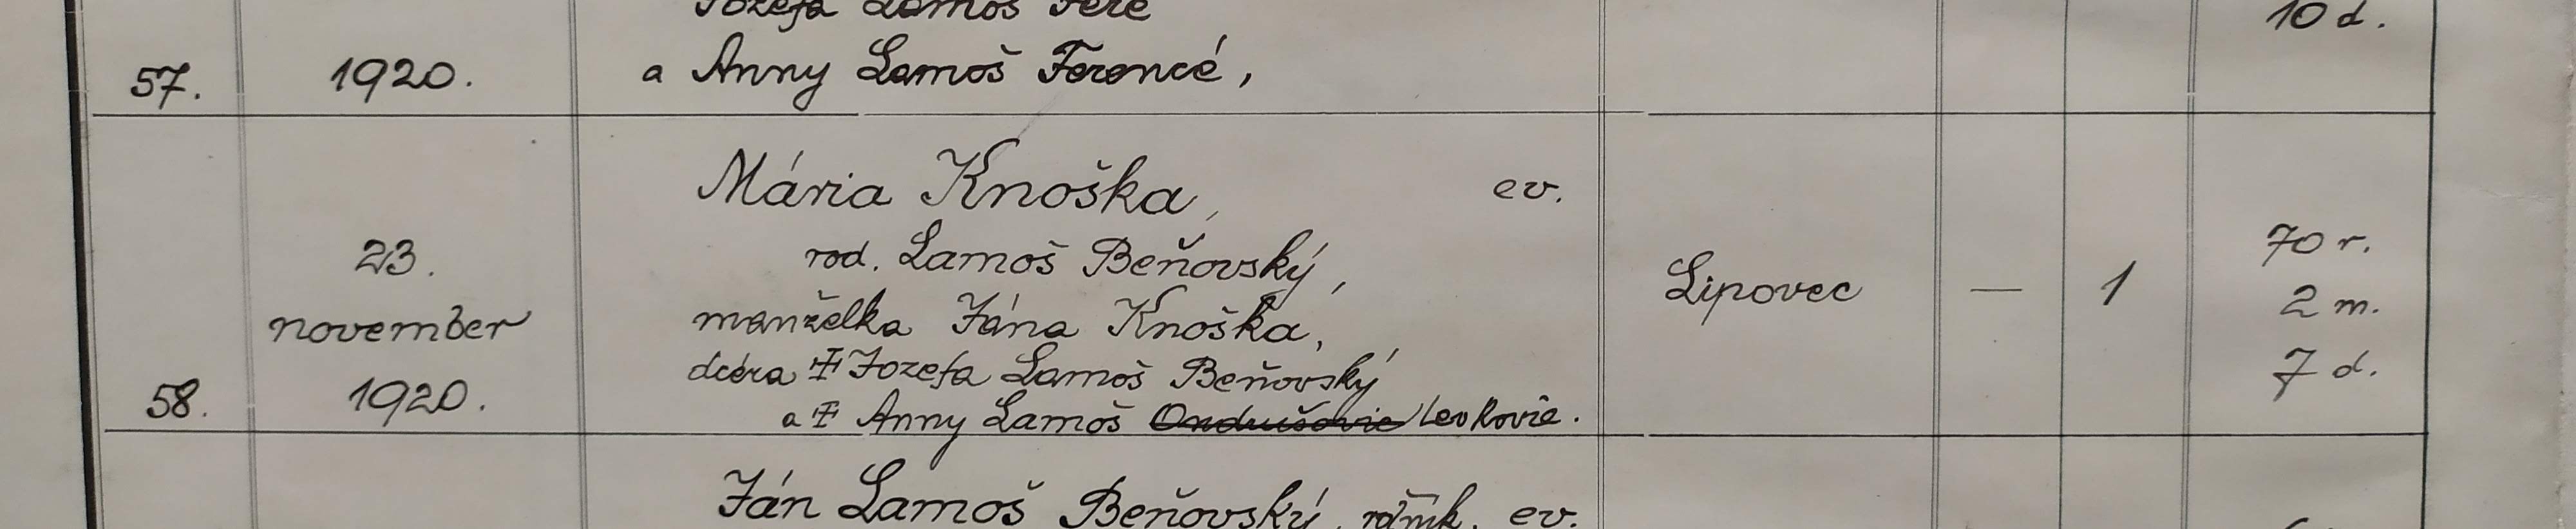 Jozefa Lamoš Fere 10 d.
57. 1920. a Anny Lamoš Ferencé,
Mária Knoška, ev.
23. rod. Lamoš Beňovský, 70 r.
november manželka Jána Knoška, Lipovec — 1 2 m.
dcéra ‡ Jozefa Lamoš Beňovský 7 d.
58. 1920. a ‡ Anny Lamoš Ondrušovie Levkovie.
Ján Lamoš Beňovský, ev.